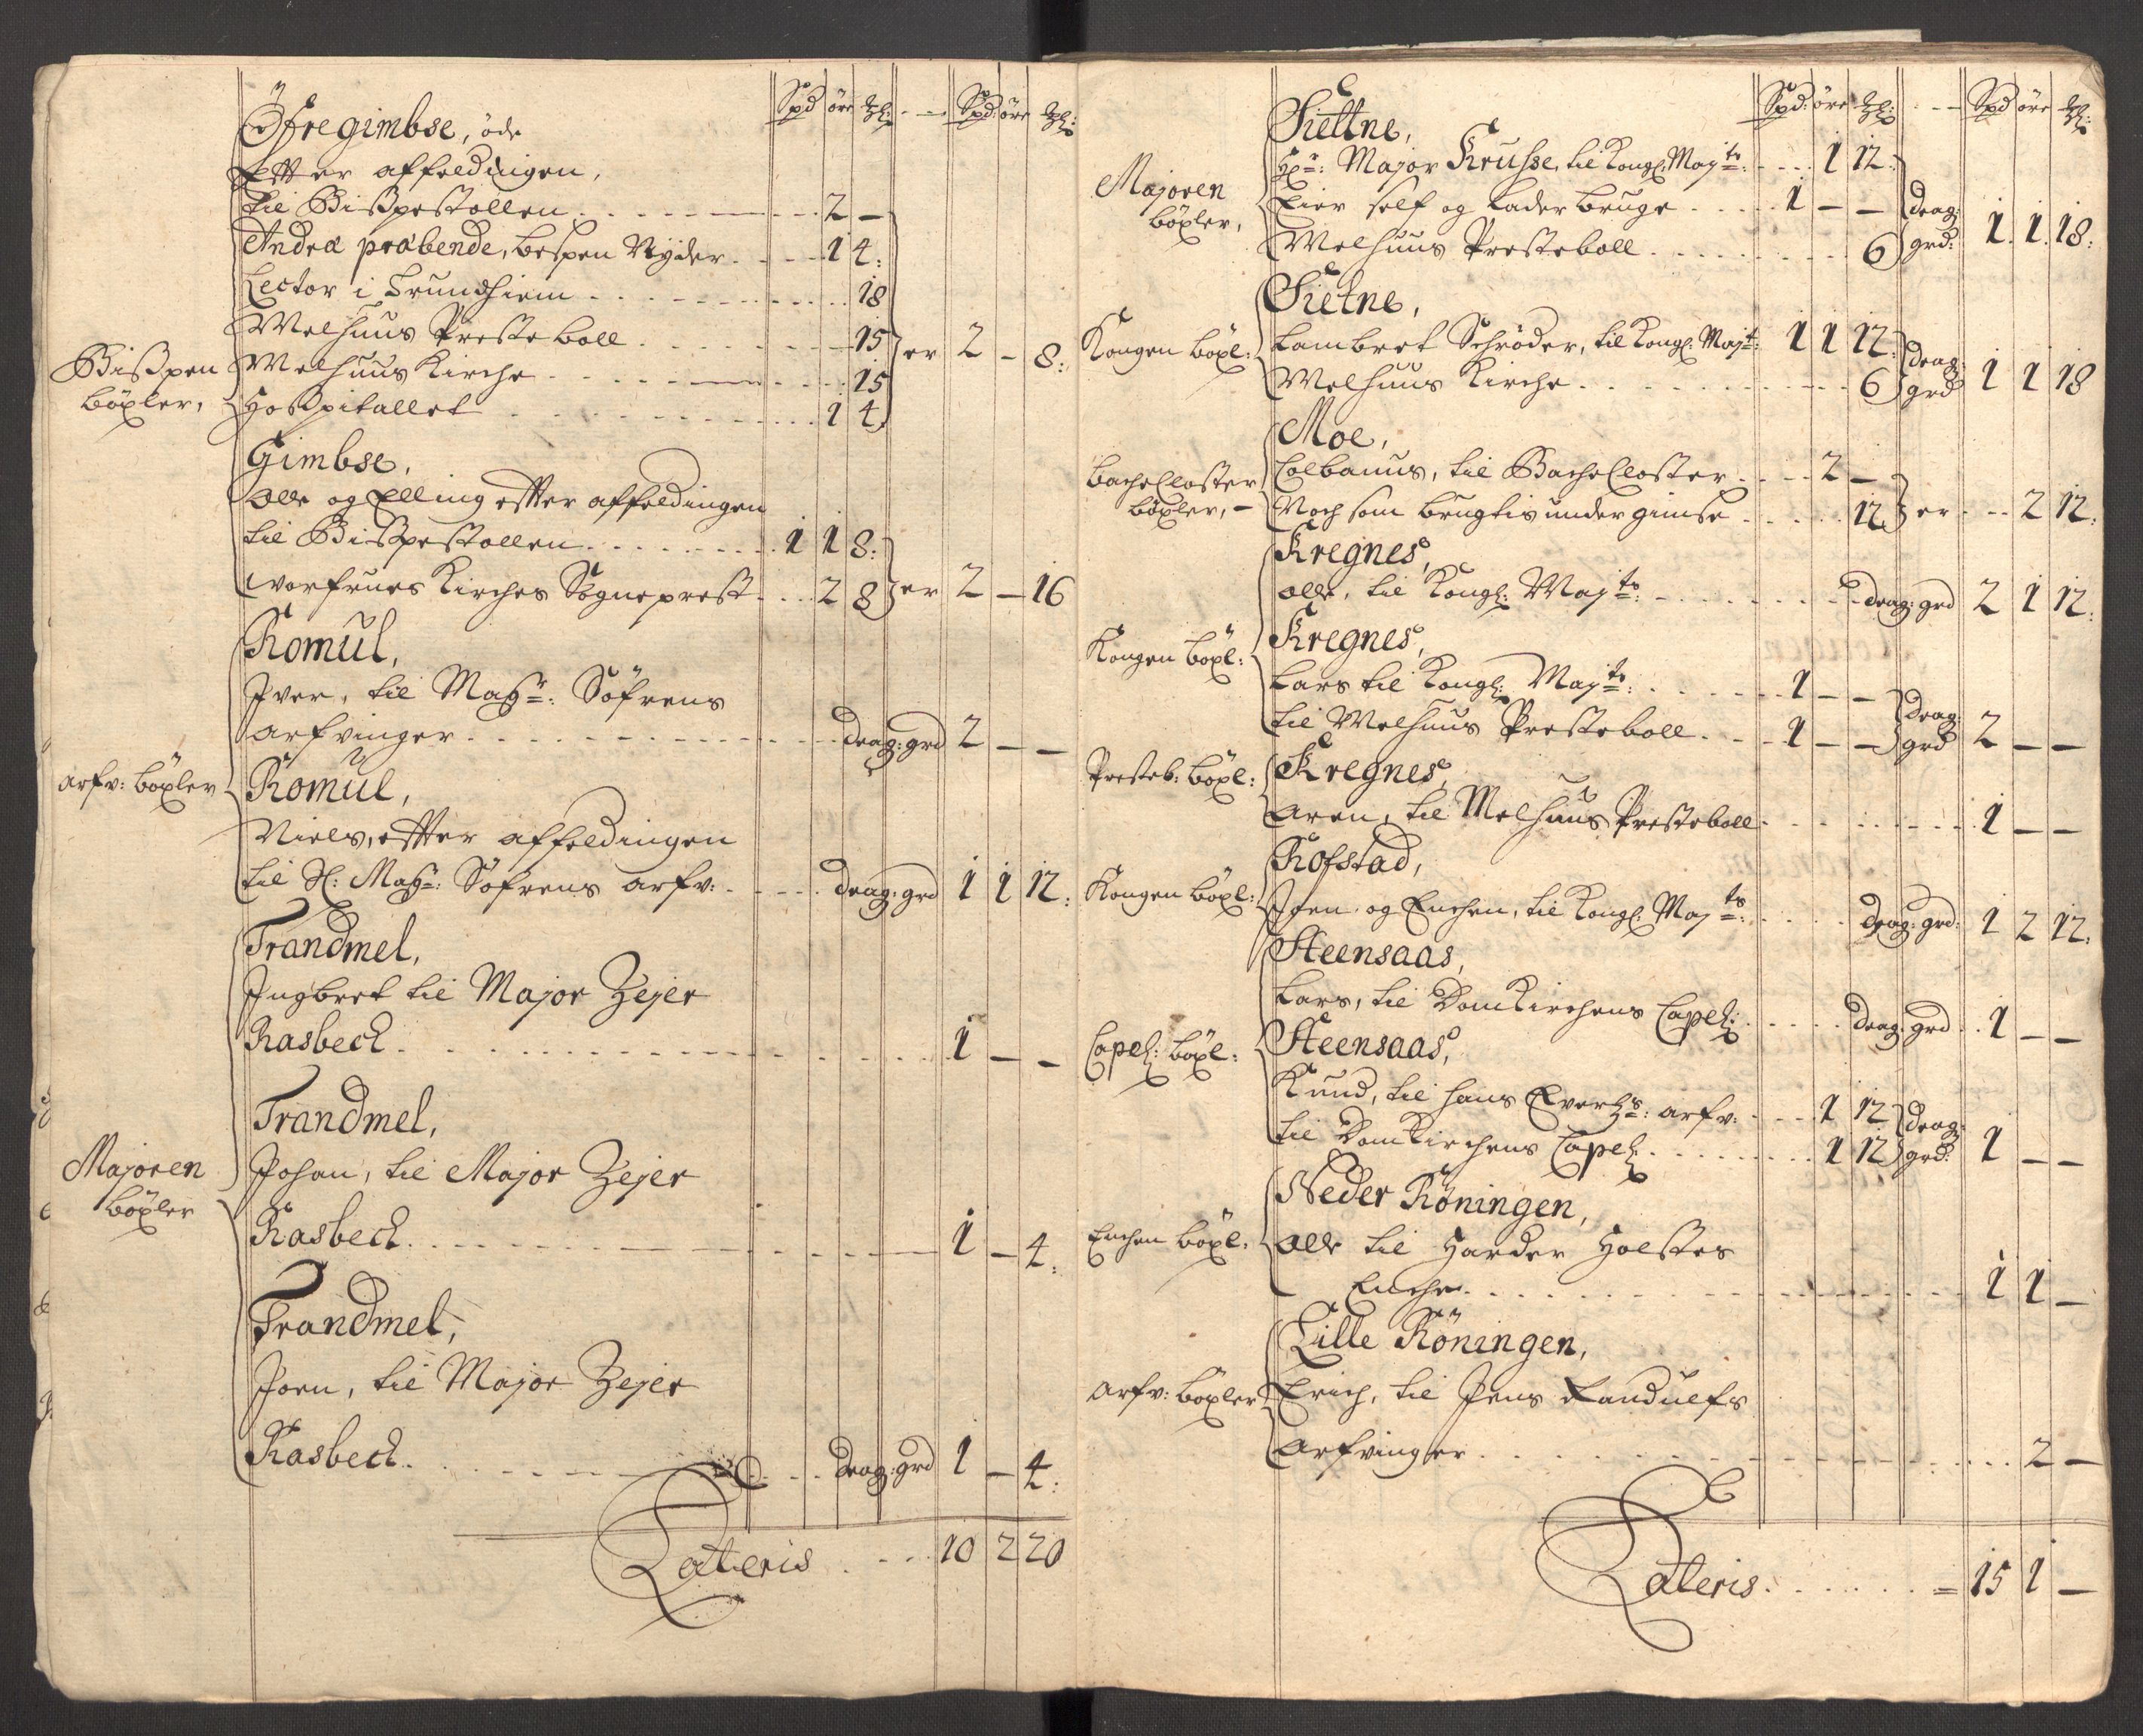 Spd öre ₰: — Spd: öre ₰:
Öfregimbse, öde
Effter affeldingen,
til Bißpestollen 2 —
Andræ præbende, bespen Nÿder 1 4:
Lector i Trundhiem 18
Melhuus Preste boll 15 er 2 — 8:
Bißpen böxler,
Melhuus Kirche 15
Hoßpitallet 1 4
Gimbse,
Olle og Elling effter affeldingen
til Bißpestollen 1 1 8:
Vorfrues Kirches Sogneprest 2 8 er 2 — 16
Romül,
Iver, til Magr: Söfrens
arfvinger drag: grd 2 — —
arfv: böxler
Romül,
Niels, effter affeldingen
til Sl: Magr: Söfrens arfv: drag: grd 1 1 12:
Trandmel,
Ingbret til Major Zejer
Rasbech 1 — —
Trandmel,
Majoren böxler
Johan, til Major Zejer
Rasbech 1 — 4:
Trandmel,
Joen, til Major Zejer
Rasbech drag: grd 1 — 4:
Lateris 10 2 20
Spd: öre ₰: — Spd öre ₰:
Siettne,
Hr: Major Krusse, til Kongl: Majts: 1 12
Majoren böxler,
Eier self og lader bruge 1 — — drag: grd: 1. 1. 18:
Melhuus Presteboll 6
Sietne,
Kongen böxl:
Lambret Schröder, til Kongl: Majt: 1 1 12 drag: grd 1 1 18
Melhuus Kirche 6
Moe,
Bache Closter böxler, —
Colbanus, til Bache Closter 2 —
Noch som brugtis under gimse 12 er 2 12:
Kregnes,
Olle, til Kongl: Majts: drag: grd 2 1 12:
Kongen böxl:
Kregnes,
Lars til Kongl: Majts: 1 — —
til Melhuus Presteboll 1 — — drag: grd 2 — —
Presteb: böxl:
Kregnes,
Aren, til Melhuus Presteboll 1 — —
Rofstad,
Kongen böxl:
Joen og Enchen, til Kongl: Majts: drag: grd: 1 2 12:
Steensaas,
Lars, til Dom Kirchens Capel: drag: grd 1 — —
Capel: böxl:
Steensaas,
Knud, til Hans Evertzs: arfv: 1 12 drag:
til Dom Kirchens Capel: 1 12 grd: 1 — —
Neder Röningen,
Enchen böxl:
Olle til Harder Holstes
Enche 1 1 —
Lille Röningen,
arfv: böxler
Erich, til Jens Randulfs
arfvinger 2 —
Lateris = 15 1 —